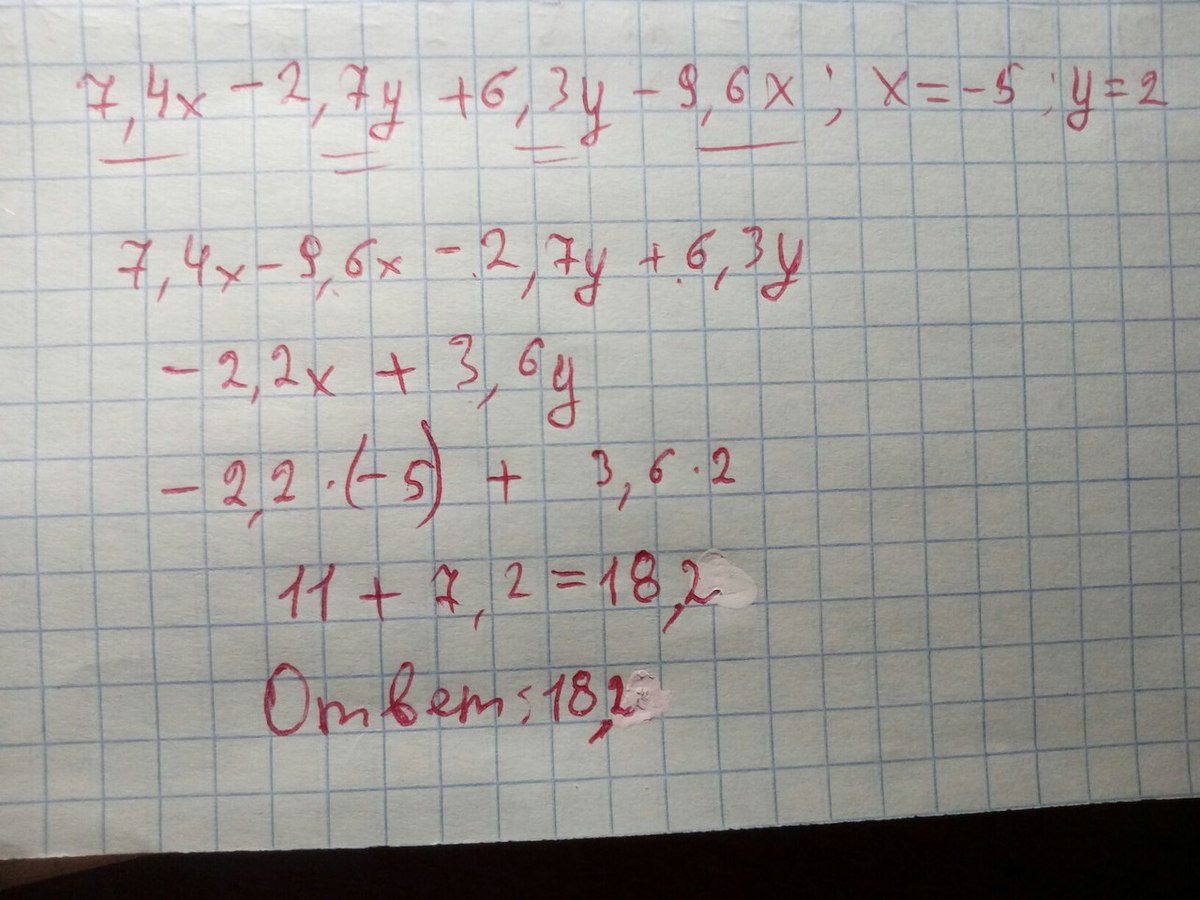 7,4x - 2,7y + 6,3y - 9,6x; x = -5; y = 2
7,4x - 9,6x - 2,7y + 6,3y
- 2,2x + 3,6y
- 2,2 · (-5) + 3,6 · 2
11 + 7,2 = 18,2
Ответ: 18,2